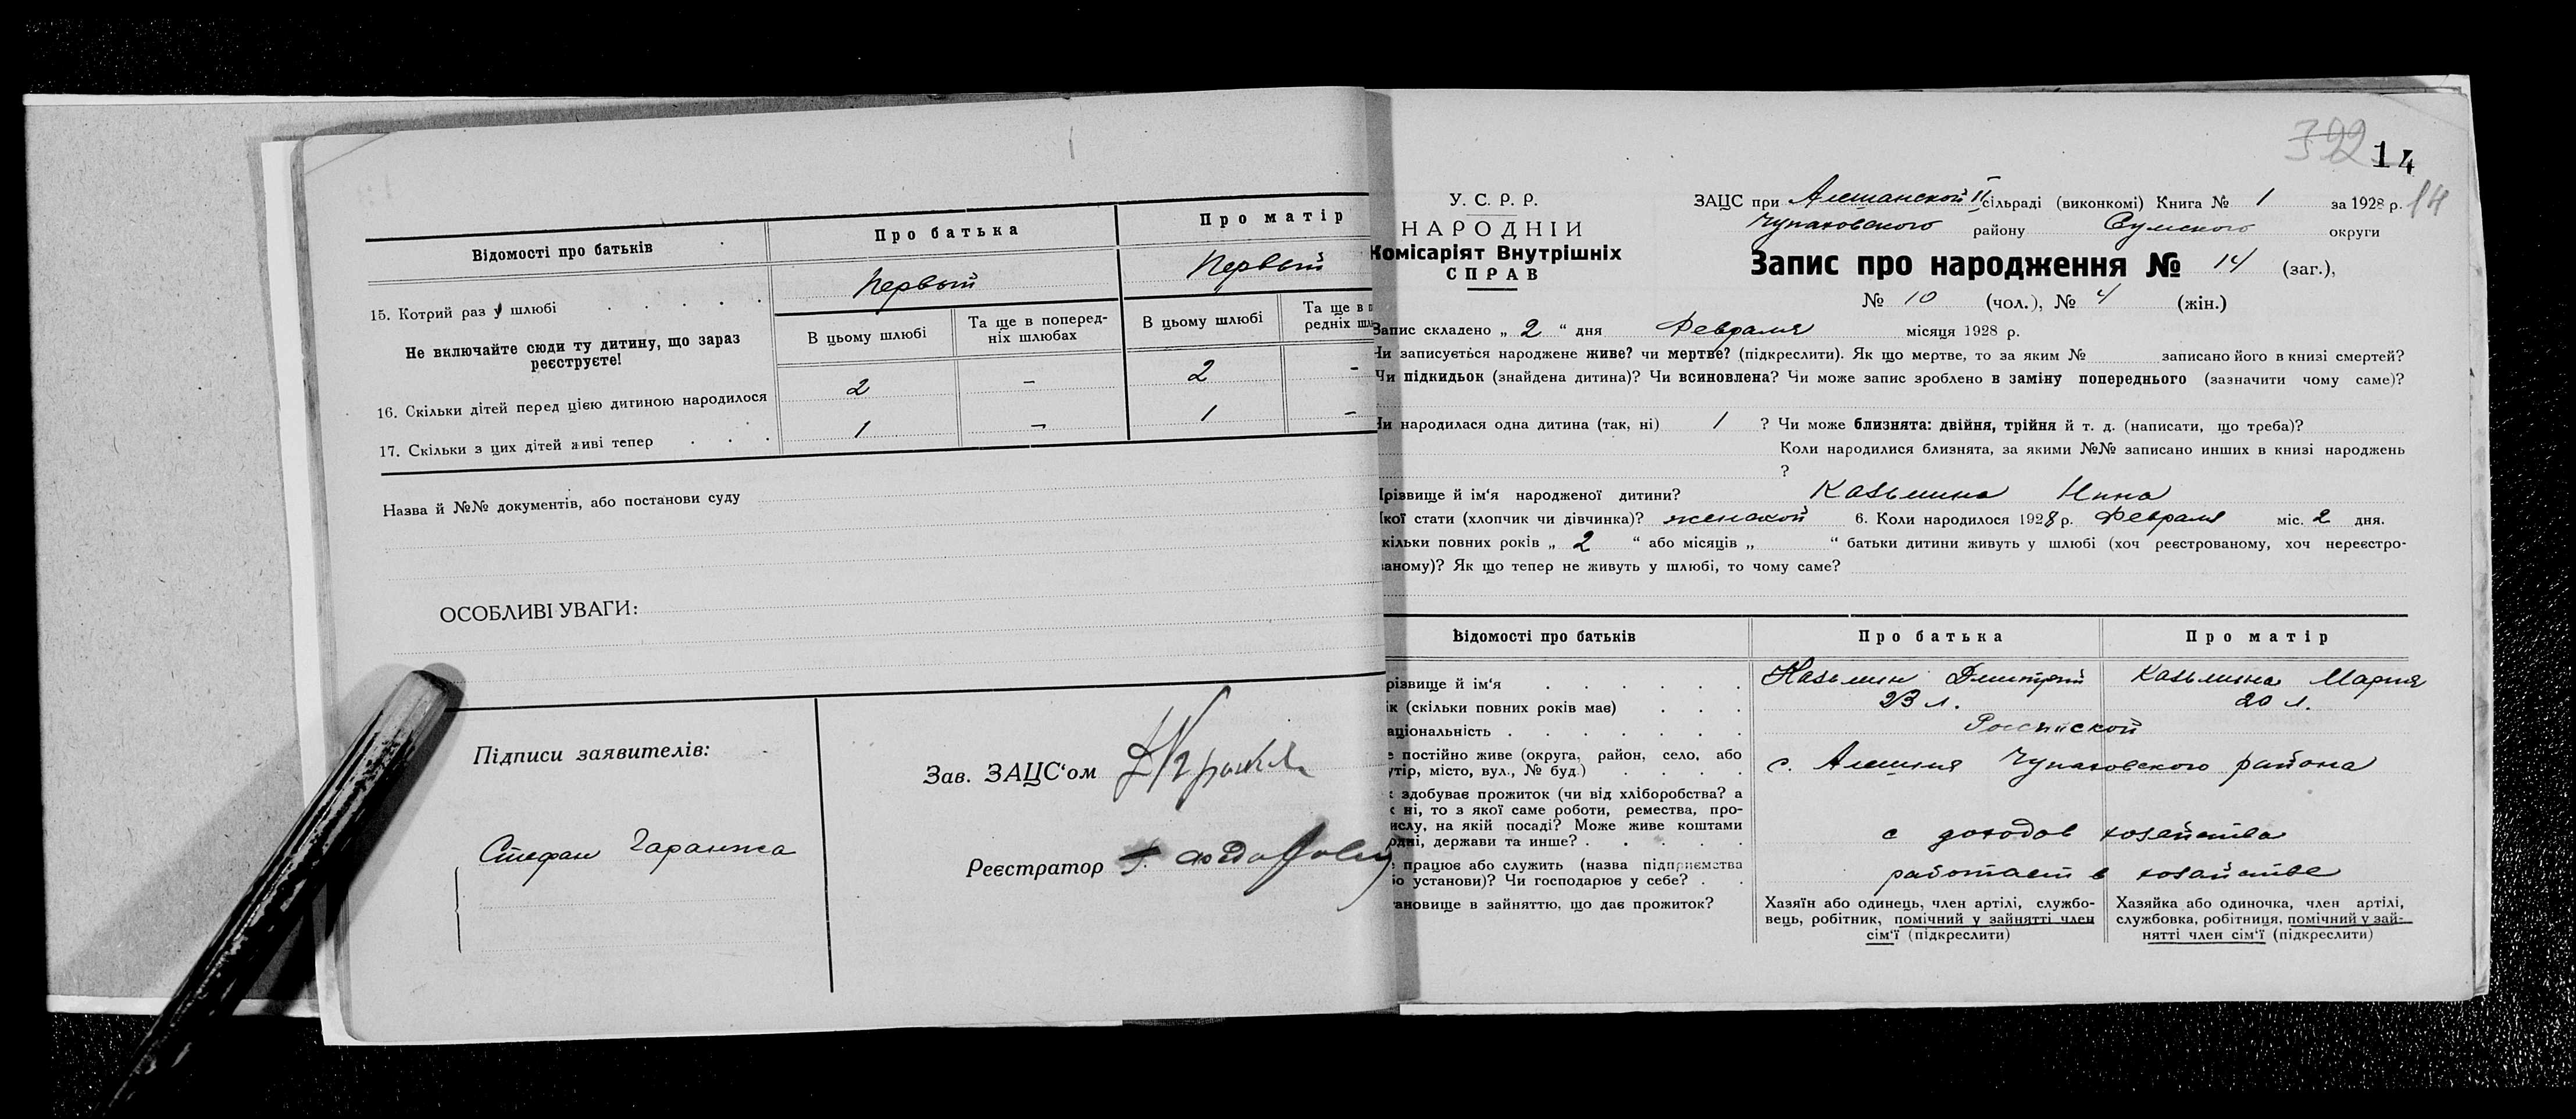 Відомості про батьків
Про батька
Про матір
15. Котрий раз у шлюбі
Первый
Первый
Не включайте сюди ту дитину, що зараз реєструєте!
В цьому шлюбі
Та ще в поперед-
ніх шлюбах
В цьому шлюбі
Та ще в п
редніх шл
16. Скільки дітей перед цією дитиною народилося
2
-
2
-
17. Скільки з цих дітей живі тепер
1
-
1
-
Назва й №№ документів, або постанови суду
ОСОБЛИВІ УВАГИ:
Підписи заявителів:
Стефан Гаранжа
Зав. ЗАЦС'ом
Реєстратор
392
14
14
У. С. Р. Р.
НАРОДНІЙ
Комісаріят Внутрішніх
СПРАВ
ЗАЦС при Алешанской II сільраді (виконкомі) Книга № 1 за 1928 р.
Чупаховского району Сумского округи
Запис про народження № 14 (заг.),
№ 10 (чол.), № 4 (жін.)
Запис складено „ 2 “ дня Февраля місяця 1928 р.
Чи записується народжене живе? чи мертве? (підкреслити). Як що мертве, то за яким № записано його в книзі смертей?
Чи підкидьок (знайдена дитина)? Чи всиновлена? Чи може запис зроблено в заміну попереднього (зазначити чому саме)?
Чи народилася одна дитина (так, ні) 1 ? Чи може близнята: двійня, трійня й т. д. (написати, що треба)?
Коли народилися близнята, за якими №№ записано инших в книзі народжень
?
різвище й ім'я народженої дитини? Казьмина Нина
кої стати (хлопчик чи дівчинка)? женской 6. Коли народилося 1928 р. Февраля міс. 2 дня.
кільки повних років „ 2 “ або місяців „ “ батьки дитини живуть у шлюбі (хоч реєстрованому, хоч нереєстро-
ваному)? Як що тепер не живуть у шлюбі, то чому саме?
Відомості про батьків
Про батька
Про матір
різвище й ім'я
Казьмин Дмитрий
Казьмина Мария
ік (скільки повних років має)
23 л.
20 л.
аціональність
Российской
е постійно живе (округа, район, село, або
утір, місто, вул., № буд.)
с. Алешня Чупаховского района
к здобуває прожиток (чи від хліборобства? а
к ні, то з якої саме роботи, ремества, про-
ислу, на якій посаді? Може живе коштами
рдні, держави та инше?
с доходов хозяйства
е працює або служить (назва підприємства
бо установи)? Чи господарює у себе?
работает в хозайстве
ановище в зайняттю, що дає прожиток?
Хазяїн або одинець, член артілі, службо-
вець, робітник, помічний у зайнятті член
сім'ї (підкреслити)
Хазяйка або одиночка, член артілі,
службовка, робітниця, помічний у зай-
нятті член сім'ї (підкреслити)